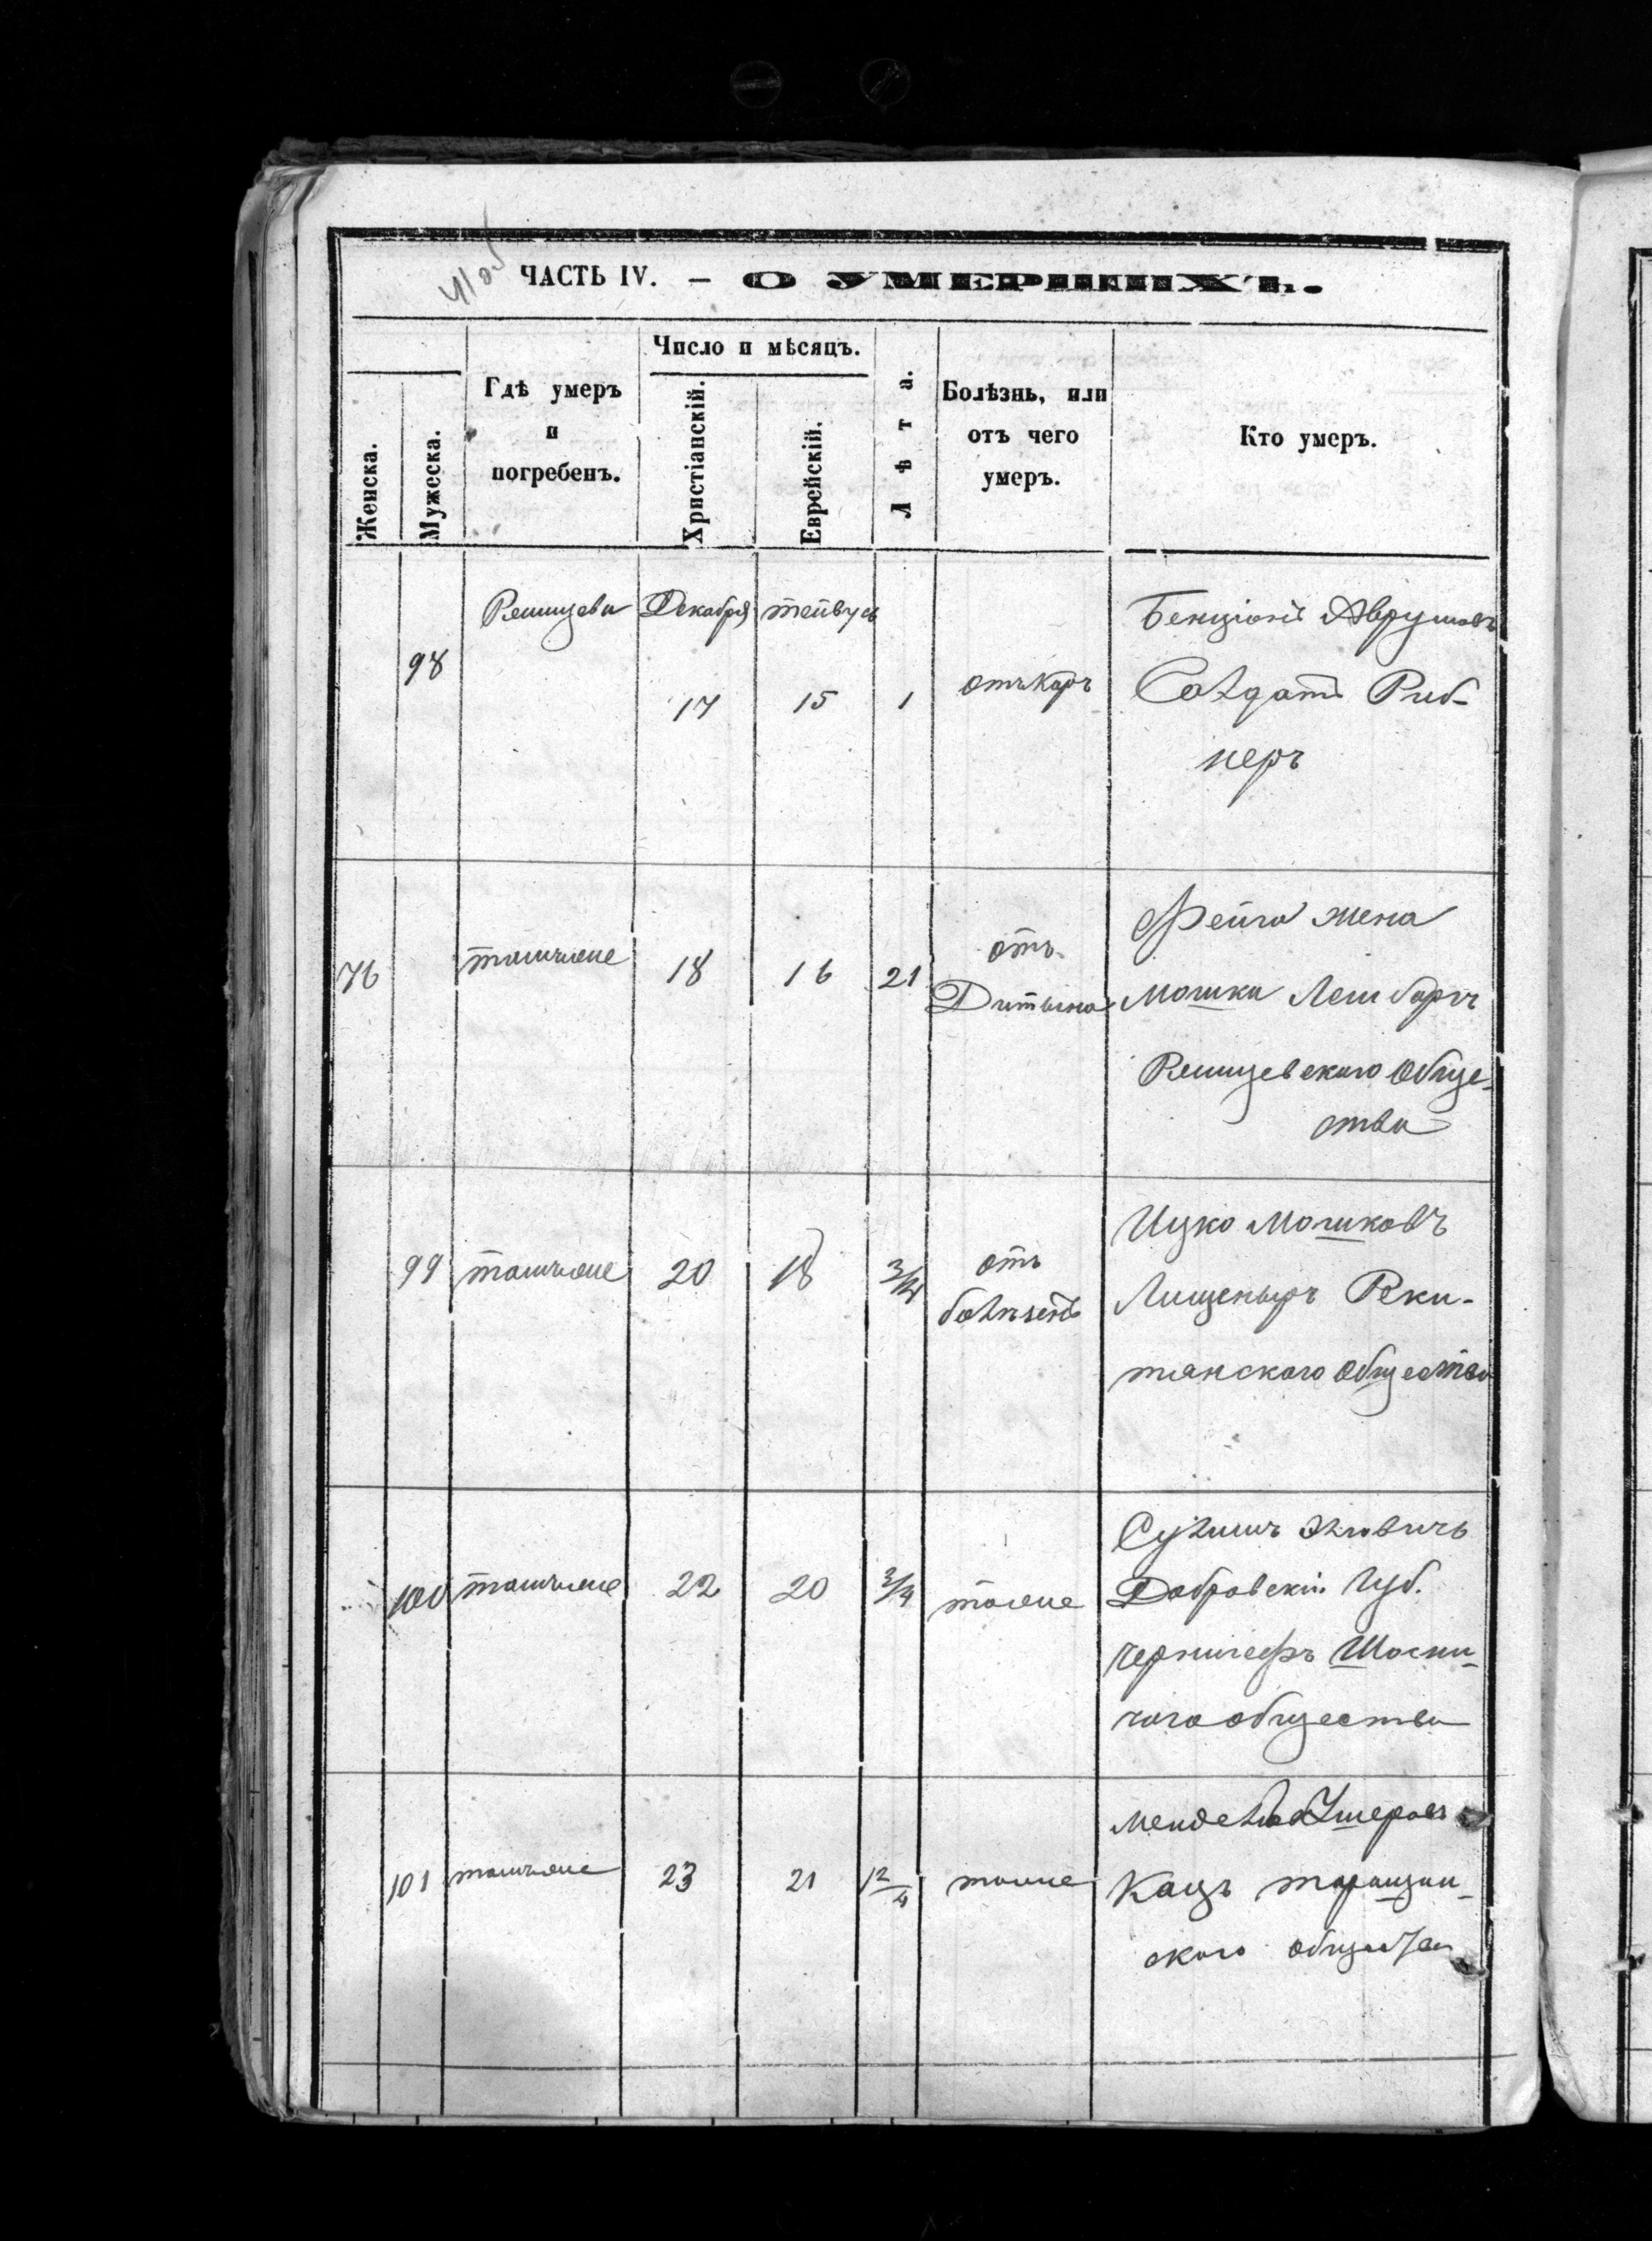 ЧАСТЬ IV. — О УМЕРШИХЪ.
Женска.
Мужеска.
Гдѣ умеръ
и
погребенъ.
Число и мѣсяцъ.
Христіанскій.
Еврейскій.
Лѣта.
Болѣзнь, или
отъ чего
умеръ.
Кто умеръ.
98
Ржищева
Декабря
тейвусъ
17
15
1
отъ Коръ
Бенціонъ Аврумовъ
Солдатъ Риб-
неръ
76
тамъжже
18
16
21
отъ
Дитына
Фейга жена
Мошка Лейбарг
Ржищевскаго Обще-
ства
99
тамъжже
20
18
3/4
отъ
болѣзенъ
Ицко Мошковъ
Лищеныръ Рки-
тянскаго Общества
100
тамъжже
22
20
3/4
тоже
Сулимъ Эліовичъ
Добровскій Губ.
чернигефъ Шосни-
чаго общества
101
тамъжже
23
21
12/4
тоже
Мендель Ушеровъ
Кацъ таращан-
скаго общества